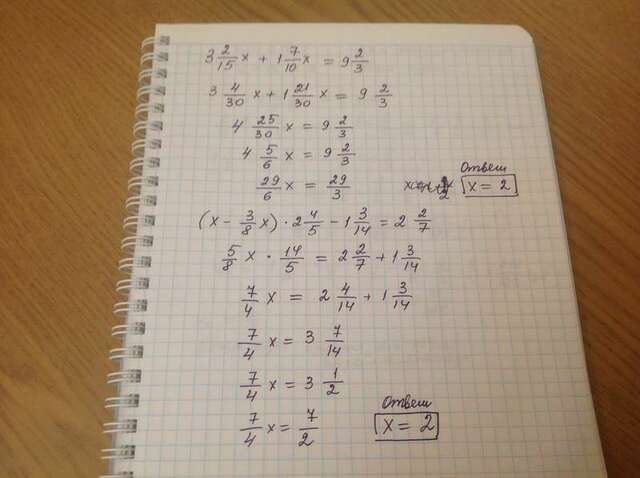 3 2/15 x + 1 7/10 x = 9 2/3
3 4/30 x + 1 21/30 x = 9 2/3
4 25/30 x = 9 2/3
4 5/6 x = 9 2/3
Ответ
29/6 x = 29/3 x = 2
(x - 3/8 x) · 2 4/5 - 1 3/14 = 2 2/7
5/8 x · 14/5 = 2 2/7 + 1 3/14
7/4 x = 2 4/14 + 1 3/14
7/4 x = 3 7/14
7/4 x = 3 1/2
Ответ
7/4 x = 7/2 x = 2